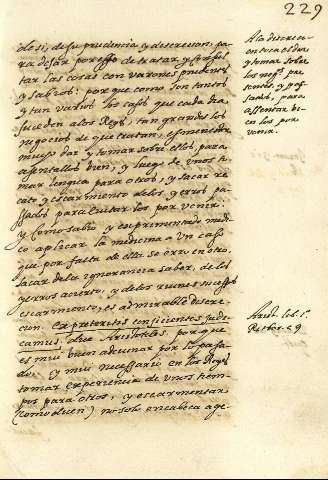 229
de si, de su prudencia y discrecion, pa
ra dejar por esso de tratar y consul
tar las cosas con varones prudentes
y sabios: porque como son tantos
y tan varios los casos que cada dia
suceden a los Reyes, tan grandes los
negocios de que tratan, es menester
mucho dar y tomar sobre ellos, para
assentallos bien, y luego de unos to
mar lengua para otros, y sacar re
cato y escarmiento de los yerros pa
ssados para evitar los por venir.
Y como sabio, y experimentado medi
co aplicar la medicina a un caso
que por falta de ella se erro en otro,
sacar de la ignorancia saber, de los
yerros acierto, y de los ruines sucessos
escarmiento, es admirable discre
cion. Ex preteritis conficientes judi
camus, dice Aristoteles, porque
es mui buen adevinar por lo passa
do. Es mui necessario en los Reyes
tomar experiencia de unos tiem
pos para otros, y escarmentar
(como dicen) no solo en cabeça age-
A la discrecion
toca el dar
y tomar sobre
los neg.s pre
sentes, y pas
sados, para
assentar bi
en los por
venir.
Arist. lib. 1.
Rethor. c. 9